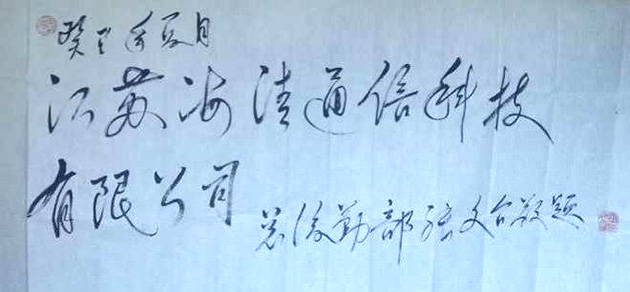 癸巳年夏月
江苏海清通信科技
有限公司
总后勤部张文台敬题